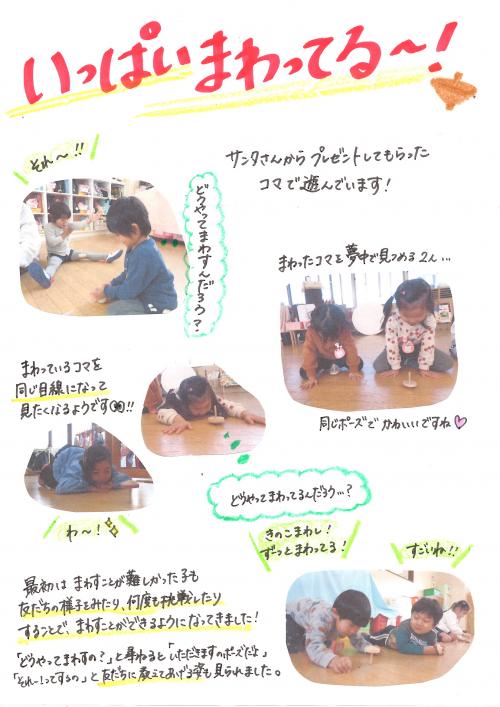 いっぱいまわってる〜！
それ〜！！
サンタさんからプレゼントしてもらった
コマで遊んでいます！
どうやってまわすんだろう？
まわったコマを夢中で見つめる2人…
まわっているコマを
同じ目線になって
見たくなるようです！！
同じポーズでかわいいですね♡
どうやってまわってるんだろう…？
わ〜！
きのこまわし！
ずっとまわってる！
すごいね！！
最初はまわすことが難しかった子も
友だちの様子をみたり、何度も挑戦したり
することで、まわすことができるようになってきました！
「どうやってまわすの？」と尋ねると「いただきますのポーズだよ」
「それー！ってするの」と友だちに教えてあげる姿も見られました。